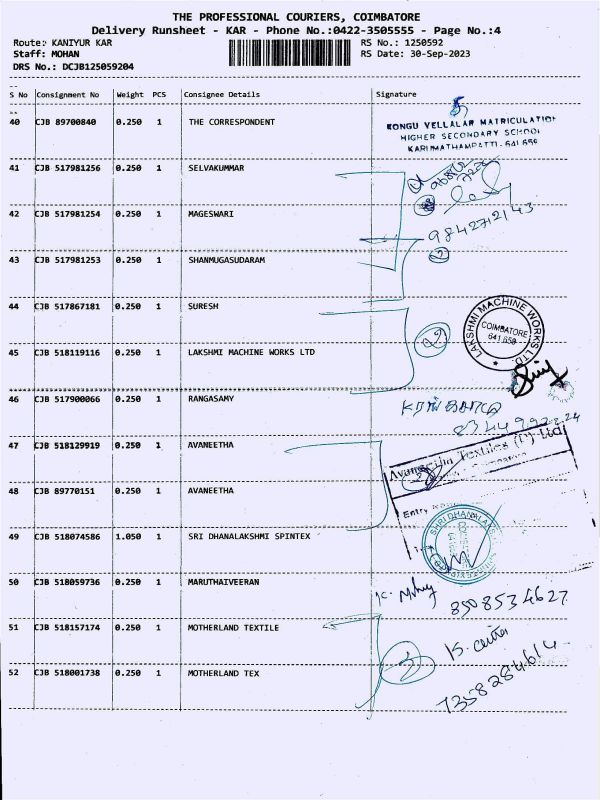 THE PROFESSIONAL COURIERS, COIMBATORE
Delivery Runsheet - KAR - Phone No.:0422-3505555 - Page No.:4
Route: KANIYUR KAR RS No.: 1250592
Staff: MOHAN RS Date: 30-Sep-2023
DRS No.: DCJB125059204
S No Consignment No Weight PCS Consignee Details Signature
40 CJB 89700840 0.250 1 THE CORRESPONDENT
KONGU VELLALAR MATRICULATION
HIGHER SECONDARY SCHOOL
KARUMATHAMPATTI. 641 659
41 CJB 517981256 0.250 1 SELVAKUMMAR
42 CJB 517981254 0.250 1 MAGESWARI
9842712143
43 CJB 517981253 0.250 1 SHANMUGASUDARAM
2
44 CJB 517867181 0.250 1 SURESH
LAKSHMI MACHINE WORKS LTD.
COIMBATORE
641 659
2
45 CJB 518119116 0.250 1 LAKSHMI MACHINE WORKS LTD
46 CJB 517900066 0.250 1 RANGASAMY
47 CJB 518129919 0.250 1 AVANEETHA
Avaneetha Textiles (P) Ltd
48 CJB 89770151 0.250 1 AVANEETHA
Entry
49 CJB 518074586 1.050 1 SRI DHANALAKSHMI SPINTEX
50 CJB 518059736 0.250 1 MARUTHAIVEERAN
8508534627
51 CJB 518157174 0.250 1 MOTHERLAND TEXTILE
52 CJB 518001738 0.250 1 MOTHERLAND TEX
7358284614